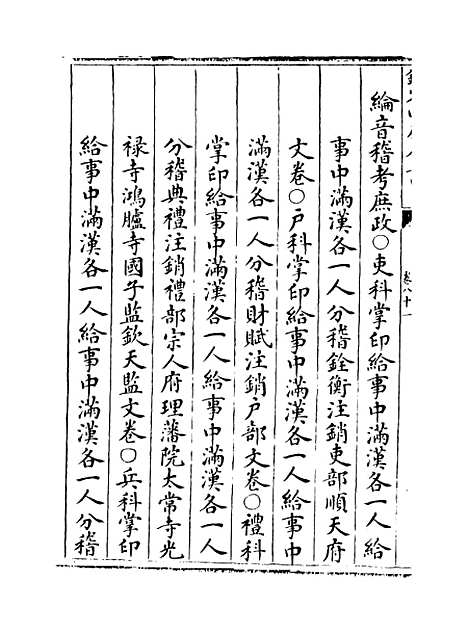 卷八十一
綸音稽考庶政○吏科掌印給事中滿漢各一人給
事中滿漢各一人分稽銓衡注銷吏部順天府
文卷○戶科掌印給事中滿漢各一人給事中
滿漢各一人分稽財賦注銷戶部文卷○禮科
掌印給事中滿漢各一人給事中滿漢各一人
分稽典禮注銷禮部宗人府理藩院太常寺光
祿寺鴻臚寺國子監欽天監文卷○兵科掌印
給事中滿漢各一人給事中滿漢各一人分稽